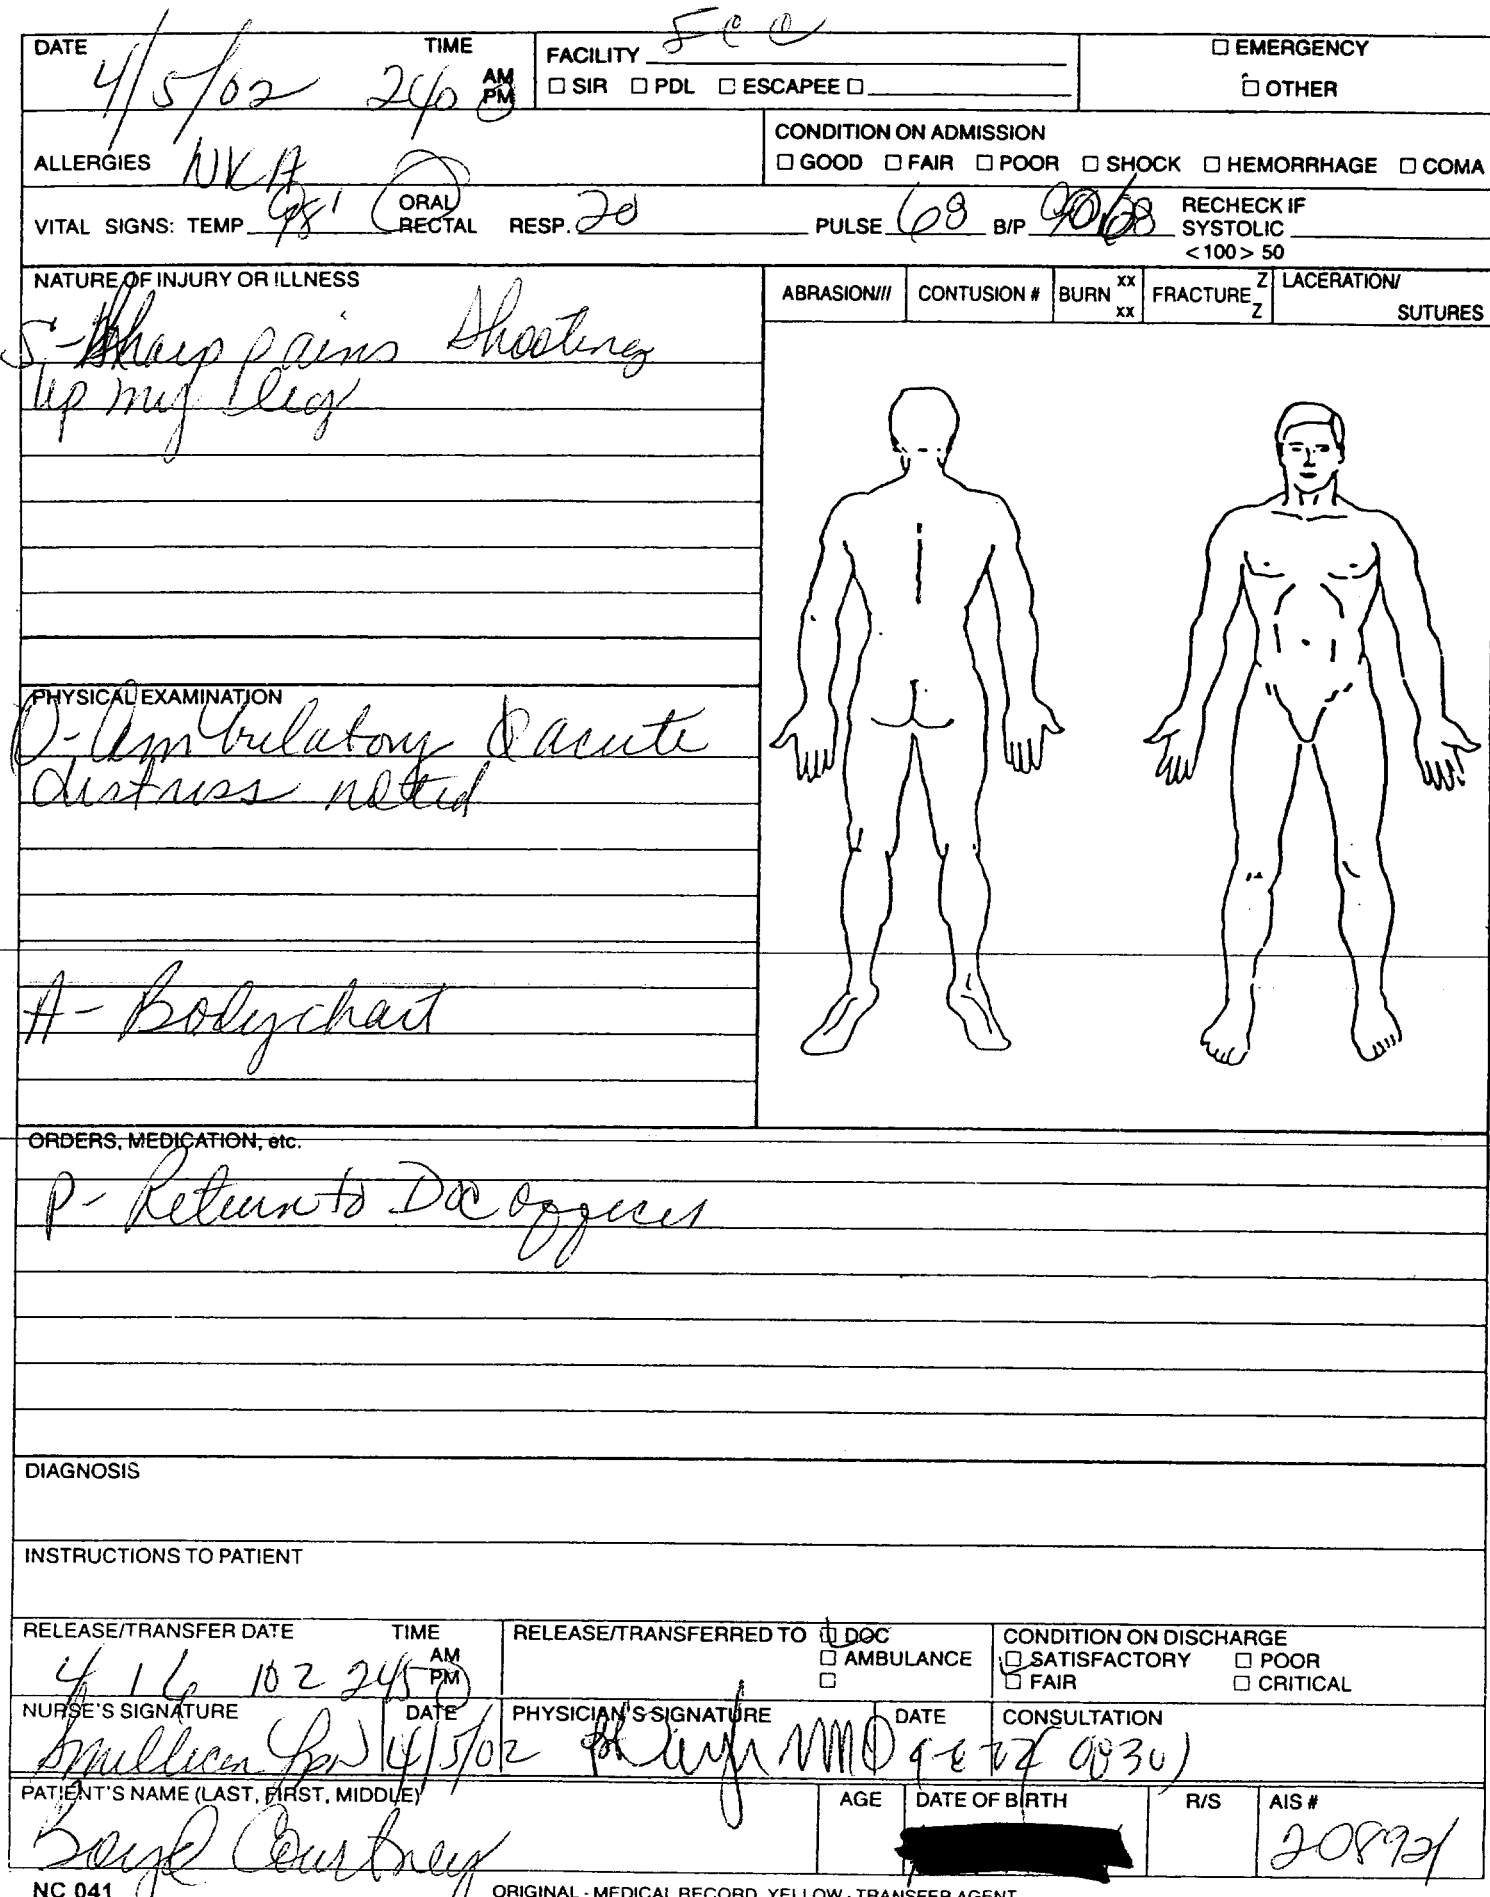 DATE 4/5/02 TIME 240 AM PM
FACILITY SCC
☐ SIR ☐ PDL ☐ ESCAPEE ☐
☐ EMERGENCY
☐ OTHER
ALLERGIES NKA
CONDITION ON ADMISSION
☐ GOOD ☐ FAIR ☐ POOR ☐ SHOCK ☐ HEMORRHAGE ☐ COMA
VITAL SIGNS: TEMP 98¹ ORAL RECTAL RESP. 20 PULSE 68 B/P 90/68 RECHECK IF SYSTOLIC <100> 50
NATURE OF INJURY OR ILLNESS
S - Sharp pains shooting
up my leg
ABRASION/// CONTUSION # BURN xx xx FRACTURE Z Z LACERATION/ SUTURES
PHYSICAL EXAMINATION
O- Ambulatory Ø acute
distress noted
A- Body chart
ORDERS, MEDICATION, etc.
P- Return to DOC officers
DIAGNOSIS
INSTRUCTIONS TO PATIENT
RELEASE/TRANSFER DATE TIME AM PM
4 / 02 245
RELEASE/TRANSFERRED TO ☐ DOC
☐ AMBULANCE
☐
CONDITION ON DISCHARGE
☐ SATISFACTORY ☐ POOR
☐ FAIR ☐ CRITICAL
NURSE'S SIGNATURE DATE
Smillican LPN 4/5/02
PHYSICIAN'S SIGNATURE DATE CONSULTATION
(0830)
PATIENT'S NAME (LAST, FIRST, MIDDLE)
Boyd Courtney
AGE DATE OF BIRTH R/S AIS #
NC 041
ORIGINAL - MEDICAL RECORD, YELLOW - TRANSFER AGENT